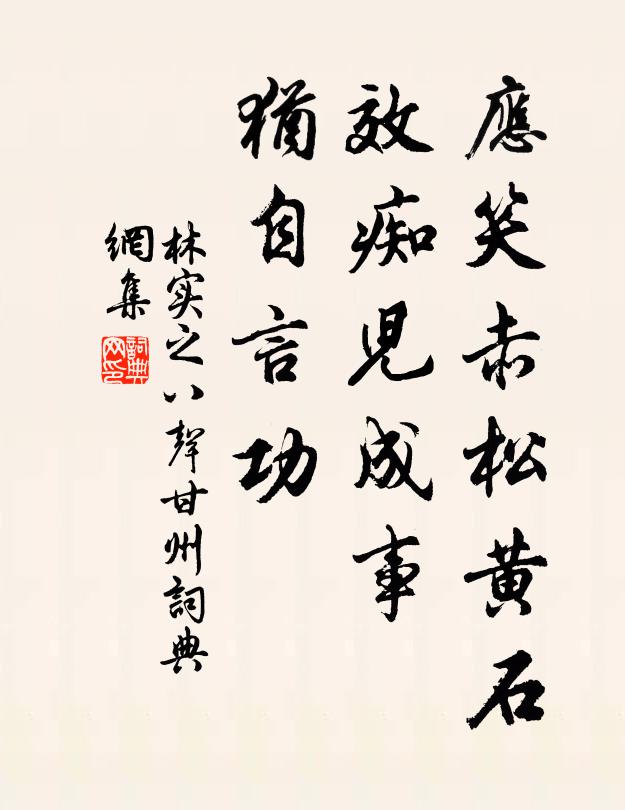 應笑赤松黄石
效痴児成事
猶自言功
林实之八聲甘州詞典
網集
詞典
网印